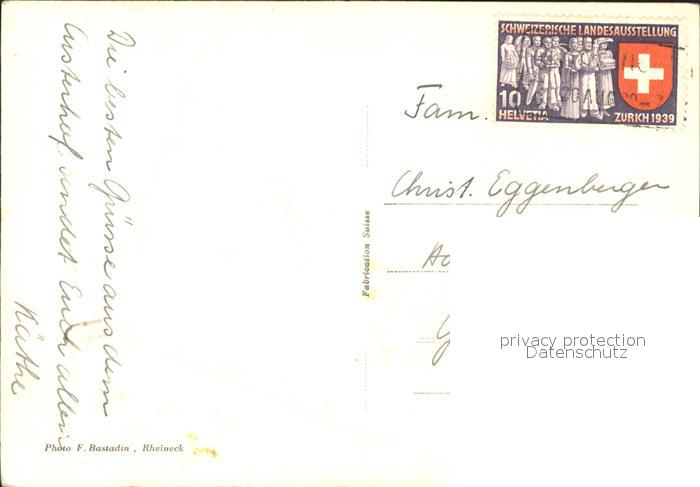 Die besten Grüsse aus dem
sendet Euch allen
Käthe
Photo F. Bastadin , Rheineck
Fabrication Suisse
SCHWEIZERISCHE LANDESAUSSTELLUNG
10
HELVETIA
ZURICH 1939
Fam.
Christ. Eggenberger
privacy protection
Datenschutz